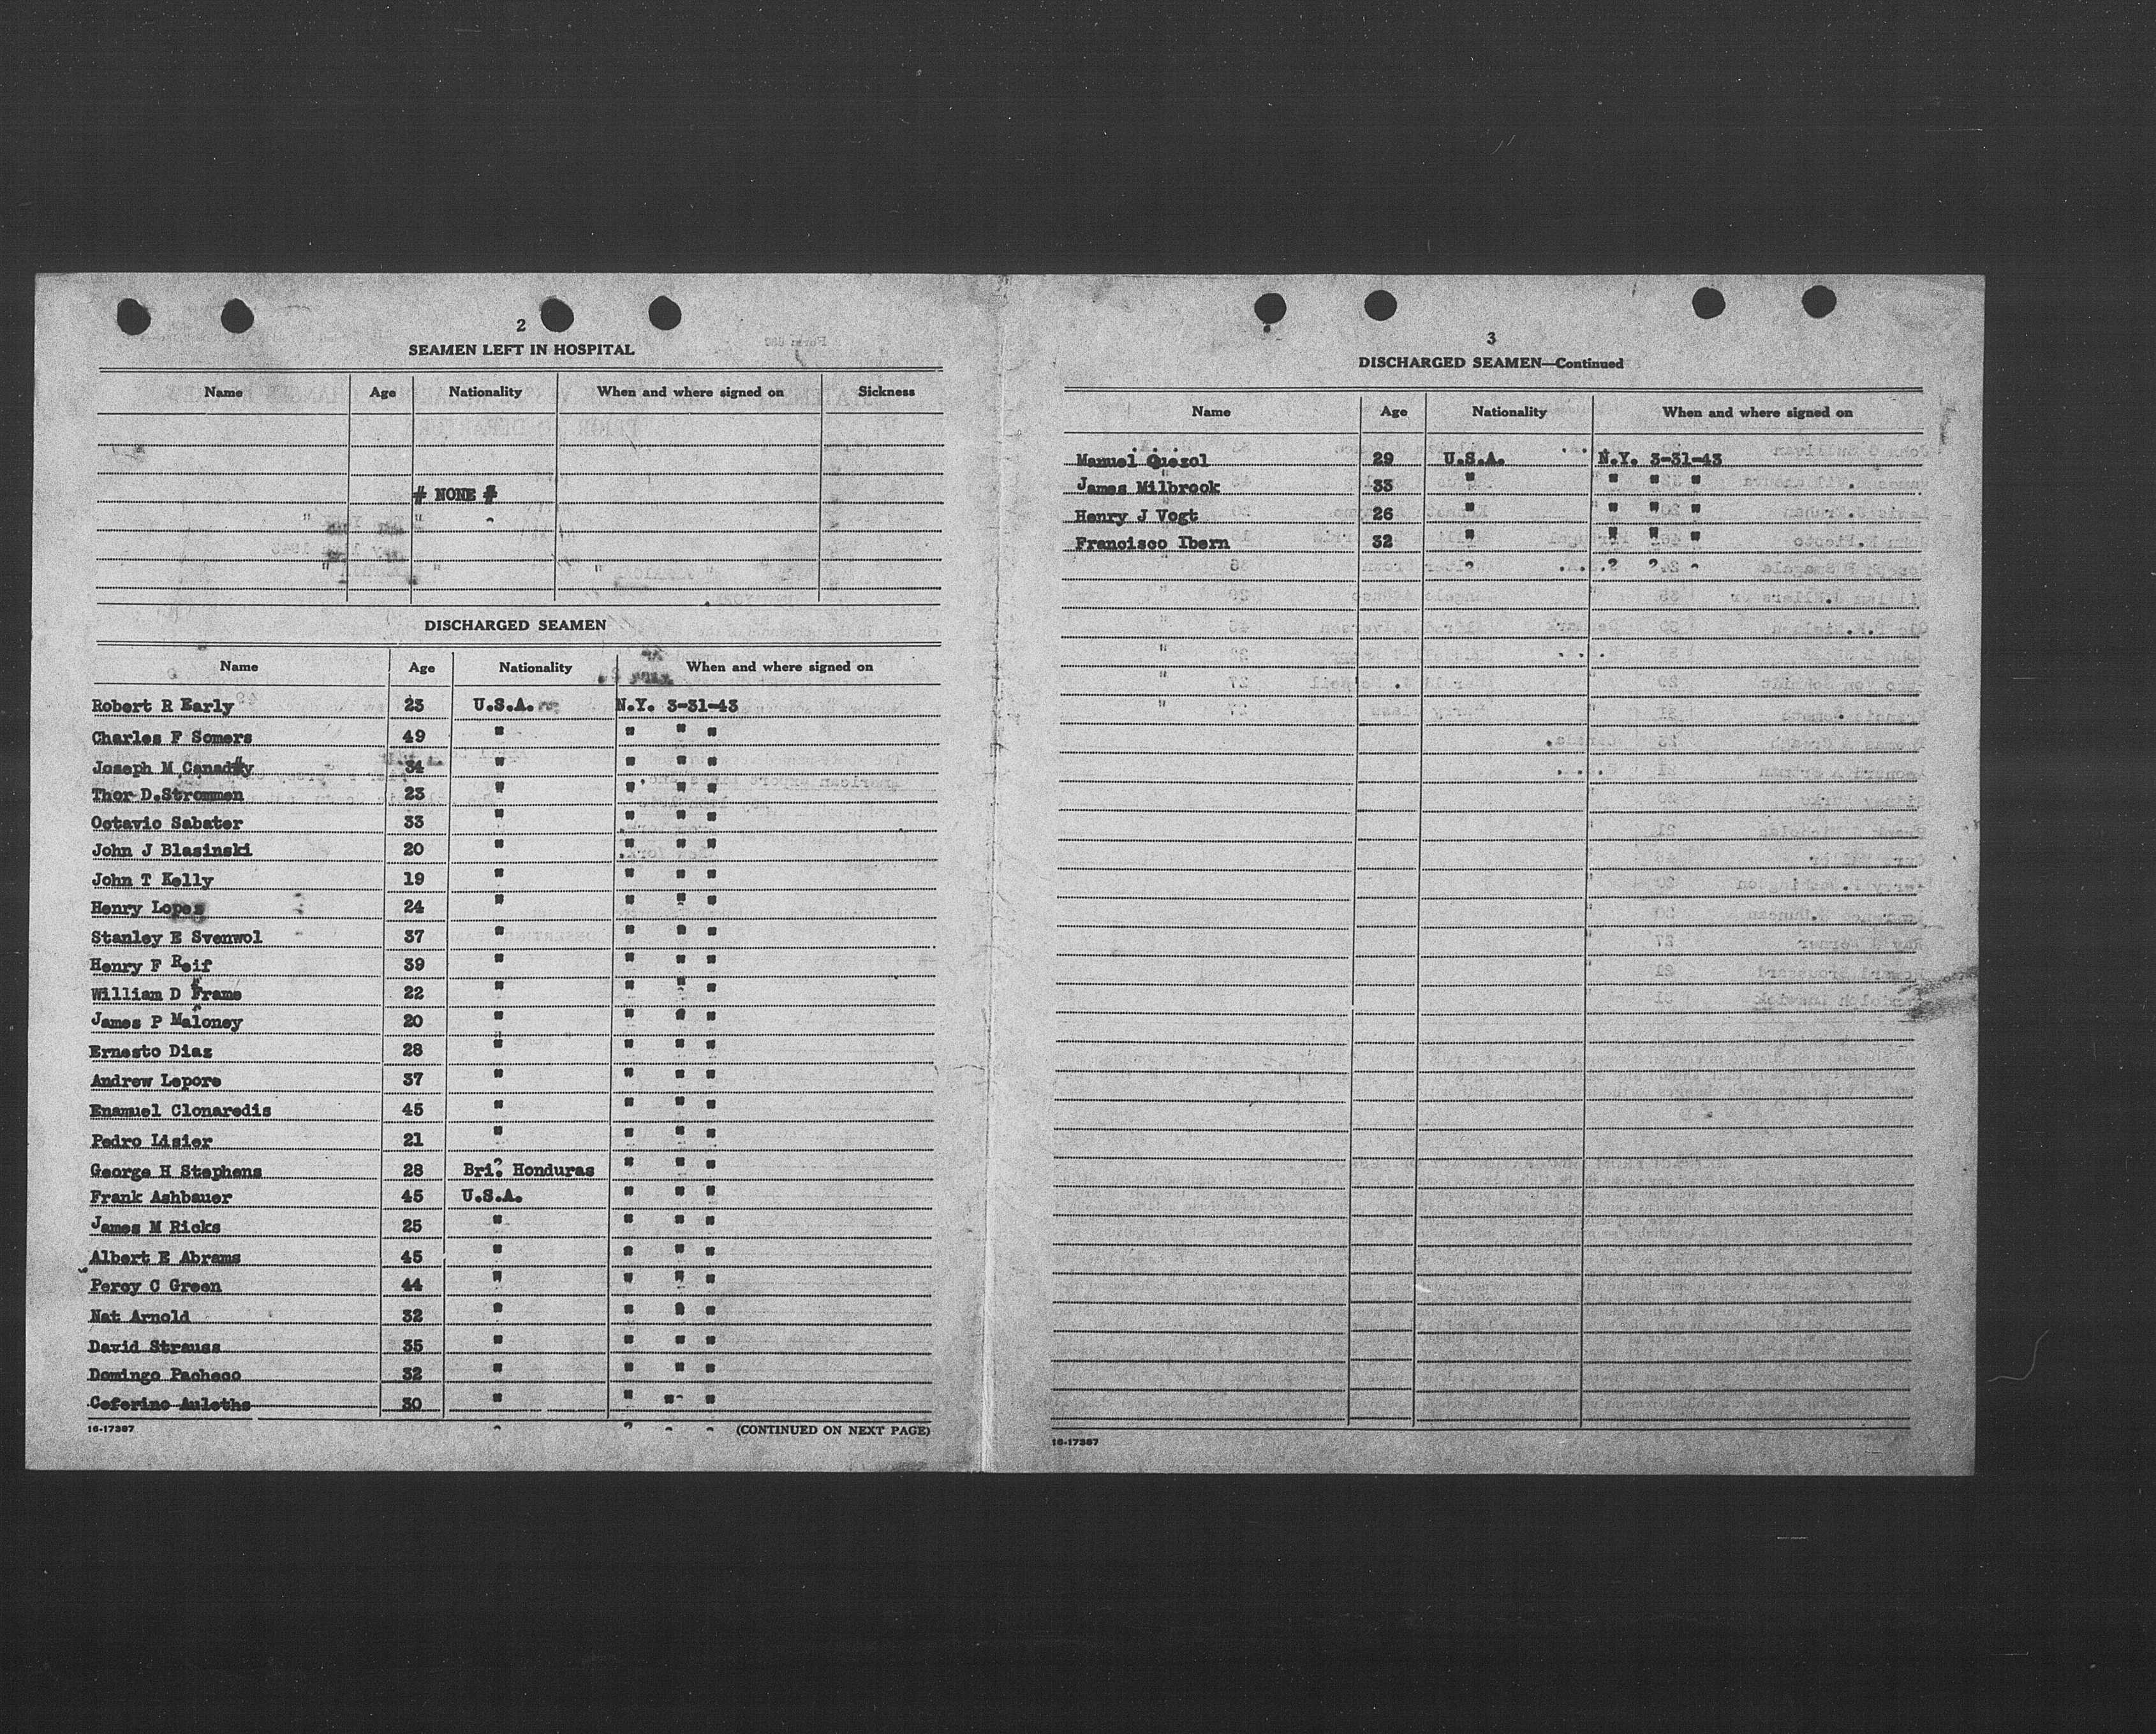 2
SEAMEN LEFT IN HOSPITAL
Name Age Nationality When and where signed on Sickness
# NONE #
DISCHARGED SEAMEN
Name Age Nationality When and where signed on
Robert R Early 23 U.S.A. N.Y. 3-31-43
Charles F Somers 49 " " " "
Joseph M Canady 34 " " " "
Thor D.Strommen 23 " " " "
Octavio Sabater 33 " " " "
John J Blasinski 20 " " " "
John T Kelly 19 " " " "
Henry Lopez 24 " " " "
Stanley E Svenwol 37 " " " "
Henry F Reif 39 " " " "
William D Frame 22 " " " "
James P Maloney 20 " " " "
Ernesto Diaz 28 " " " "
Andrew Lepore 37 " " " "
Enamuel Clonaredis 45 " " " "
Pedro Lisier 21 " " " "
George H Stephens 28 Bri. Honduras " " "
Frank Ashbauer 45 U.S.A. " " "
James M Ricks 25 " " " "
Albert E Abrams 45 " " " "
Percy C Green 44 " " " "
Nat Arnold 32 " " " "
David Strauss 35 " " " "
Domingo Pacheco 32 " " " "
Ceferino Auleths 30 " " " "
16-17367 (CONTINUED ON NEXT PAGE)
3
DISCHARGED SEAMEN—Continued
Name Age Nationality When and where signed on
Manuel Quezol 29 U.S.A. N.Y. 3-31-43
James Milbrook 33 " " " "
Henry J Vogt 26 " " " "
Francisco Ibern 32 " " " "
16-17367